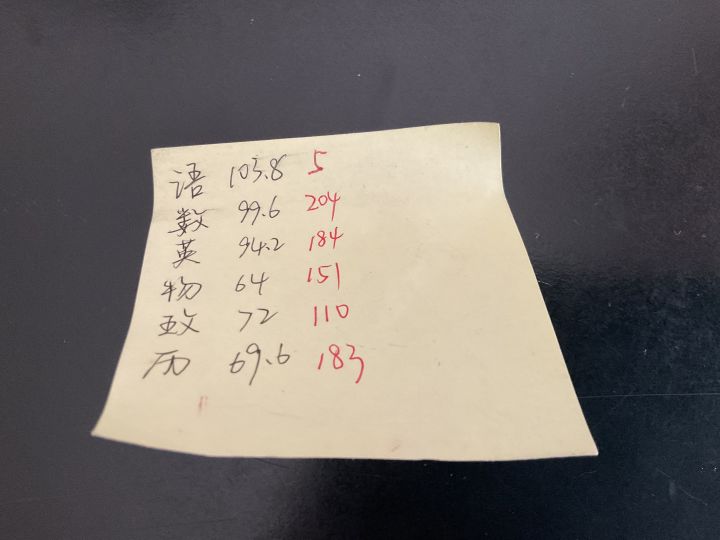 语 103.8 5
数 99.6 204
英 94.2 184
物 64 151
政 72 110
历 69.6 183